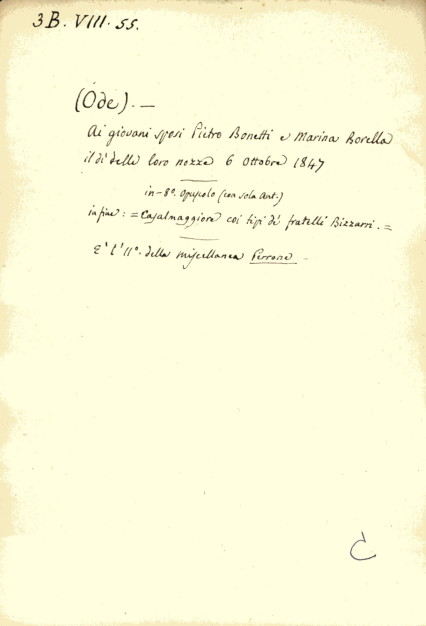 3B. VIII. 55.
(Ode). —
Ai giovani sposi Pietro Bonetti e Marina Borella
il dì delle loro nozze 6 Ottobre 1847
in-8º. opuscolo (con sola ant.)
in fine: = Casalmaggiore coi tipi de' fratelli Bizzarri. =
E' l' 11º. della miscellanea Perrone —
C